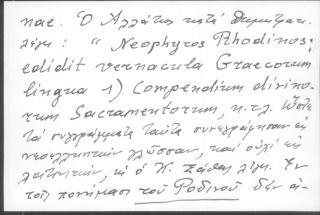 nae. Ὁ Ἀλλάτιος κατά
λέγει: "Neophytos Rhodinos;
edidit vernacula Graecorum
lingua 1) Compendium divino-
rum Sacramentorum, κ.τ.λ. Ὥστε
τά συγγράμματα ταῦτα συνεγράφησαν εἰς
νεοελληνικήν γλῶσσαν, καί οὐχί εἰς
λατινικήν, ὡς ὁ Κ. Σάθας λέγει. Ἐν
τοῖς πονήμασι τοῦ Ροδινοῦ δέν ἀ-